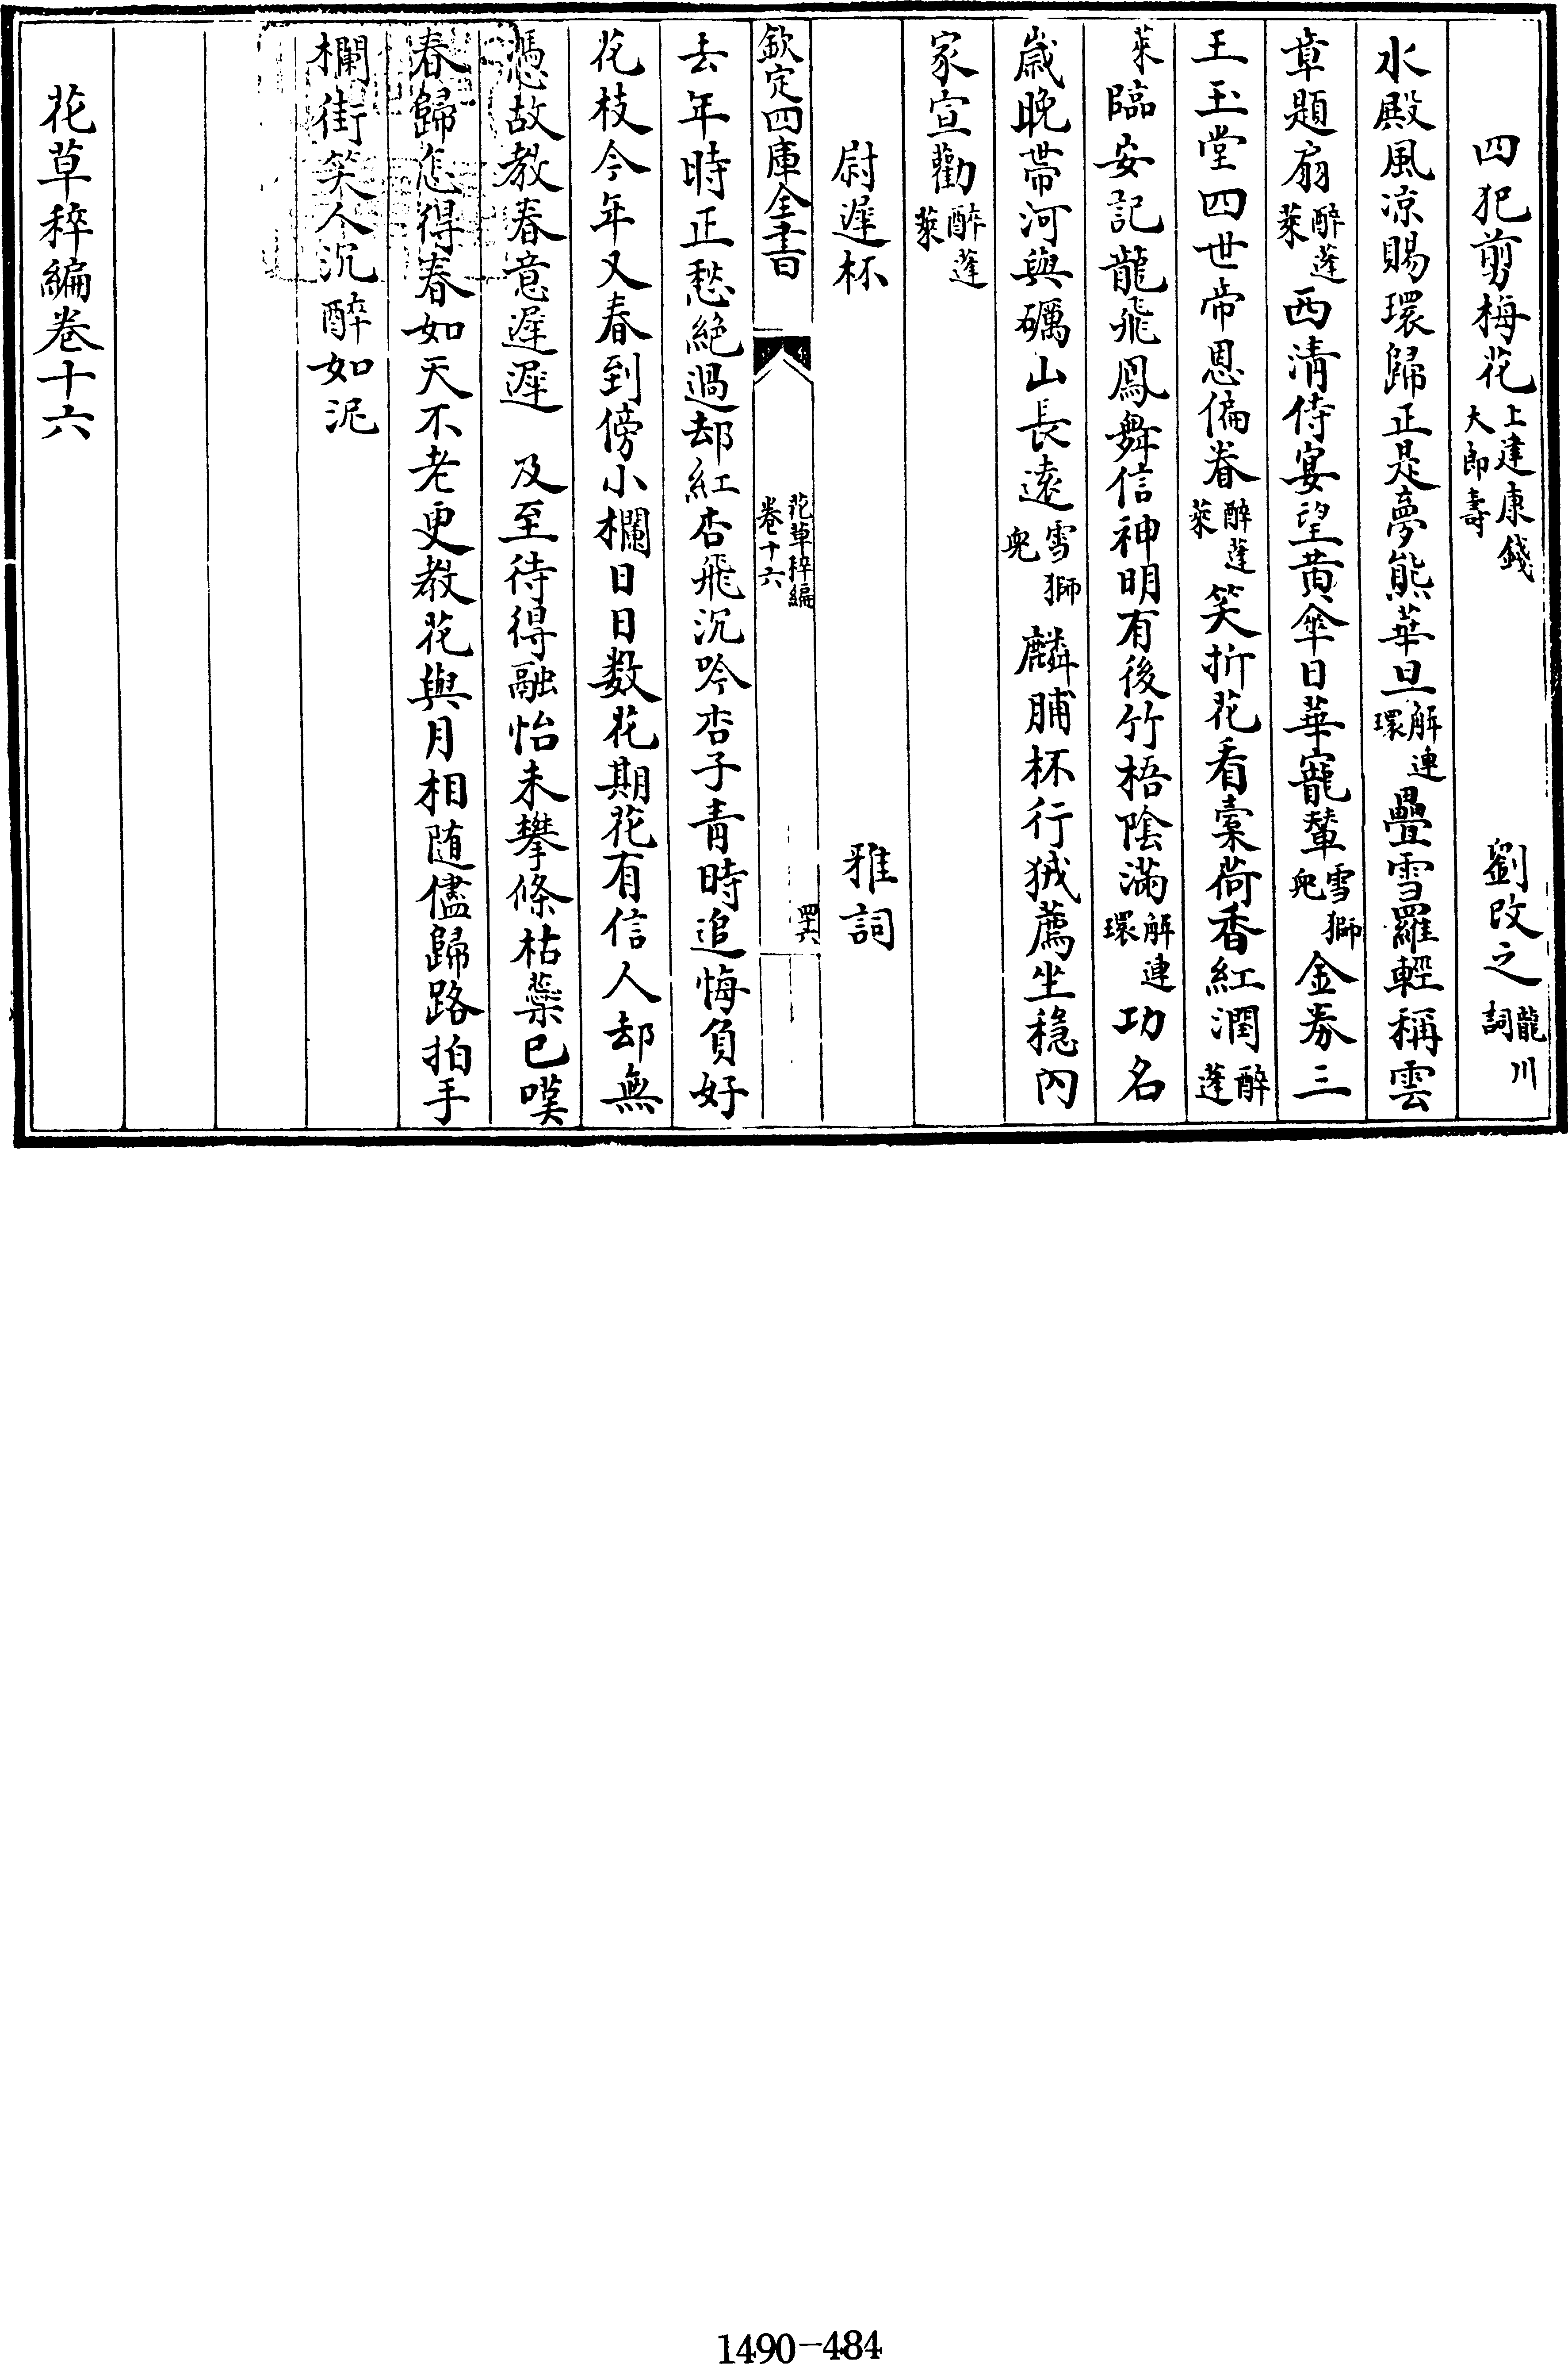 四犯剪梅花上建康錢大郎壽 劉改之龍川詞
水殿風凉賜環歸正是夢熊華旦解連環疊雪羅輕稱雲
章題扇醉蓬萊西清侍宴望黄傘日華寵輦雪獅兒金券三
王玉堂四世帝恩偏眷醉蓬萊笑折花看橐荷香紅潤醉蓬
萊臨安記龍飛鳳舞信神明有後竹梧陰滿解連環功名
歲晚帶河與礪山長遠雪獅兒麟脯杯行狨薦坐穩內
家宣勸醉蓬萊
尉遲杯 雅詞
欽定四庫全書 花草稡編卷十六 四六
去年時正愁絶過却紅杏飛沉吟杏子青時追悔負好
花枝今年又春到傍小欄日日数花期花有信人却無
憑故教春意遲遲 及至待得融怡未攀條枯蘂已嘆
春歸怎得春如天不老更教花與月相随儘歸路拍手
欄街笑人沉醉如泥
花草稡編卷十六
1490-484